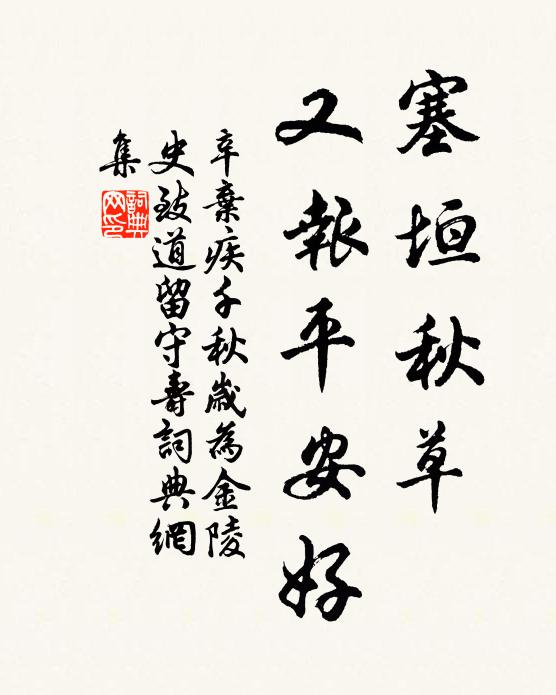 塞垣秋草
又報平安好
辛棄疾千秋歲為金陵
史致道留守壽詞典網
集
詞典网印